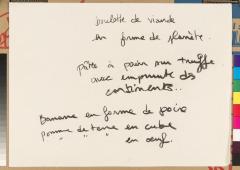 boulette de viande
en forme de planète.
pâte à pain sur truffe
avec empreinte des
continents..
Banane en forme de poire
pomme de terre en cube
" " " en oeuf.